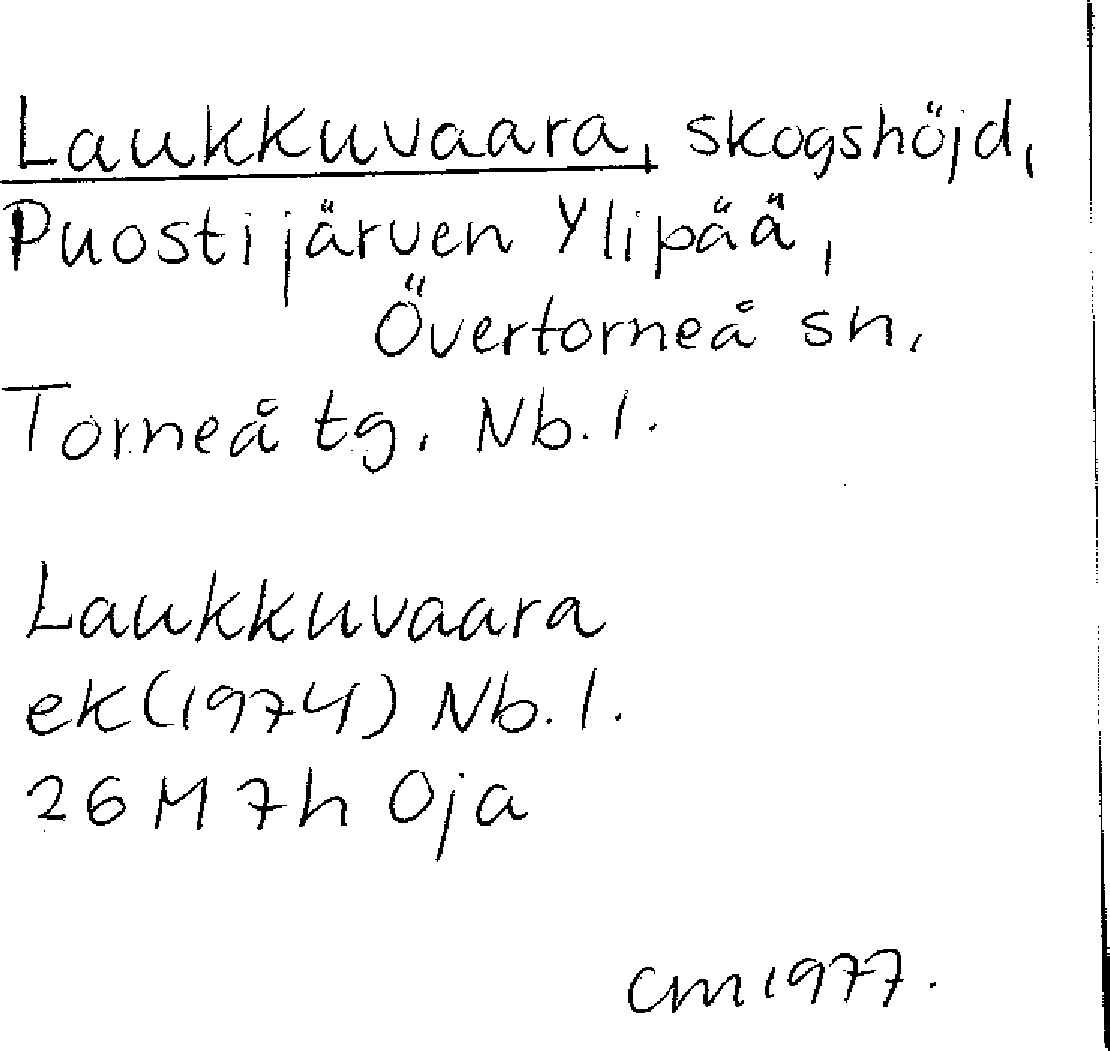 Laukkuvaara, skogshöjd,
Puostijärven Ylipää,
Övertorneå sn,
Torneå tg. Nb. l.
Laukkuvaara
ek (1974) Nb. l.
26 M 7h Oja
CM 1977.